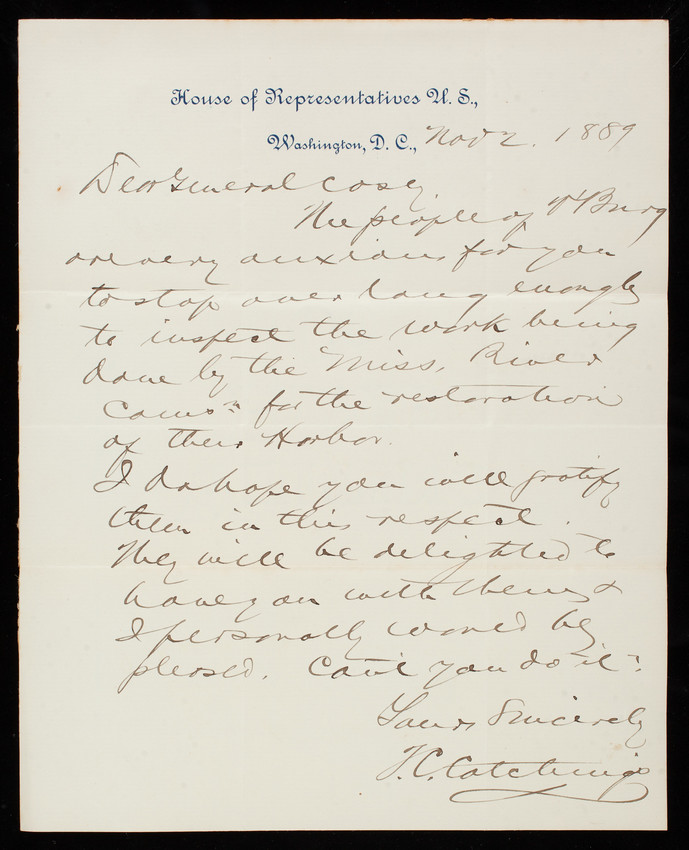 House of Representatives U. S.,
Washington, D. C., Nov 2. 1889
Dear General Casey.
The people of V'Burg
are very anxious for you
to stop over long enough
to inspect the work being
done by the Miss. River
Comsn for the restoration
of their Harbor.
I do hope you will gratify
them in this respect.
They will be delighted to
have you with them &
I personally would be
pleased. Can't you do it?
Yours Sincerely
T. C. Catchings